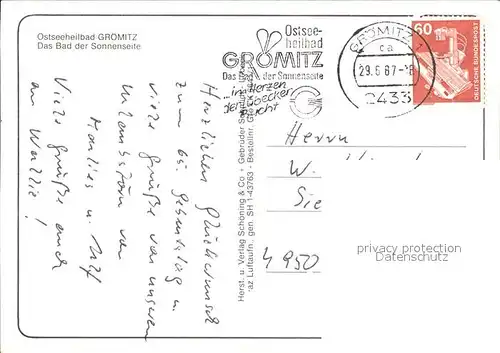 Ostseeheilbad GRÖMITZ
Das Bad der Sonnenseite
Herzlichen Glückwunsch
zum 65. Geburtstag u.
viele Grüße von unserem
Urlaubsort von
Marlies u. Ralf
Viele Grüße auch
an Wallie!
Herst. u. Verlag Schöning & Co + Gebrüder Schmidt
az Luftaufn. gen. SH 1-43763 - Bestellnr.
Ostsee-
heilbad
GRÖMITZ
Das Bad der Sonnenseite
...im Herzen
der Lübecker
Bucht
GRÖMITZ 1
ca
29.5.87-18
2433
60
DEUTSCHE BUNDESPOST
Herrn
W.
Sie
4950
privacy protection
Datenschutz